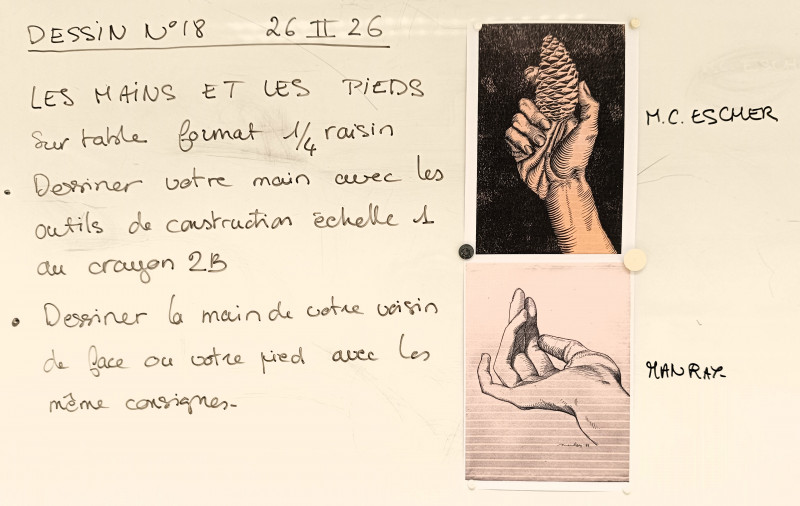 DESSIN N°18 26 II 26
LES MAINS ET LES PIEDS
Sur table format 1/4 raisin
• Dessiner votre main avec les
outils de construction échelle 1
au crayon 2B
• Dessiner la main de votre voisin
de face ou votre pied avec les
même consignes-
M.C. ESCHER
MAN RAY-